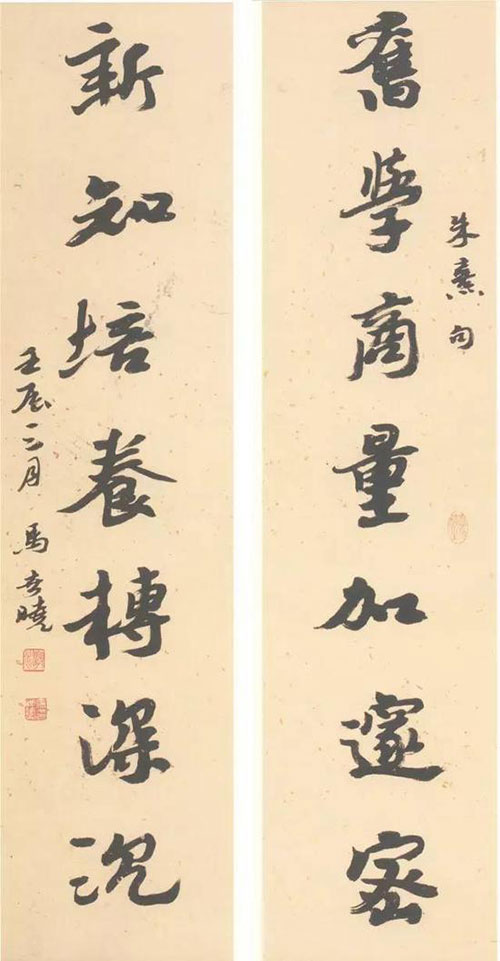 舊學商量加邃密
朱熹句
新知培養轉深沉
壬辰三月 馬世曉